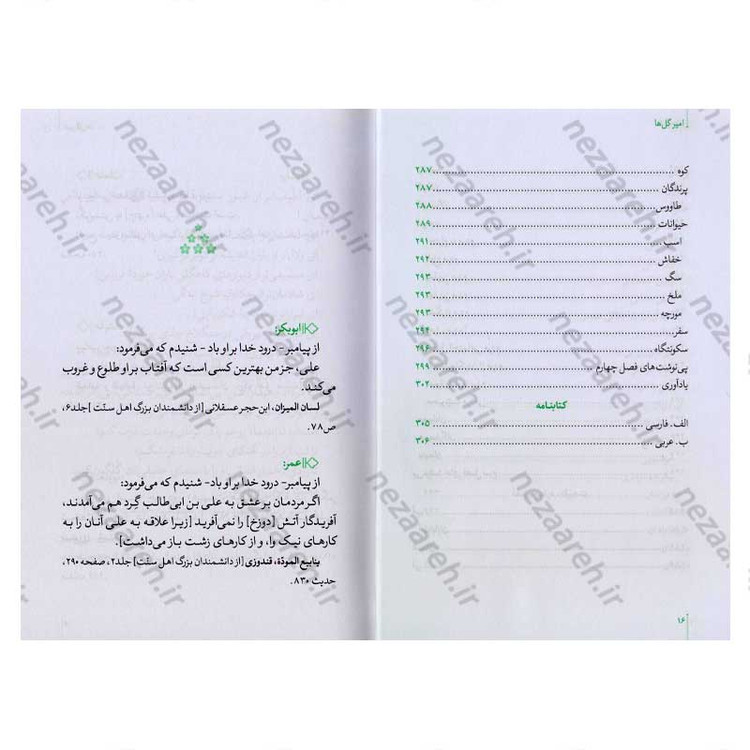 امیر گل‌ها
کوه ........ ۲۸۷
پرندگان ........ ۲۸۷
طاووس ........ ۲۸۸
حیوانات ........ ۲۸۹
اسب ........ ۲۹۱
خفاش ........ ۲۹۲
سگ ........ ۲۹۳
ملخ ........ ۲۹۳
مورچه ........ ۲۹۳
سفر ........ ۲۹۴
سکونتگاه ........ ۲۹۶
پی‌نوشت‌های فصل چهارم ........ ۲۹۹
یادآوری ........ ۳۰۲
کتابنامه
الف. فارسی ........ ۳۰۵
ب. عربی ........ ۳۰۶
۱۶
ابوبکر:
از پیامبر- درود خدا بر او باد- شنیدم که می‌فرمود:
علی، جز من بهترین کسی است که آفتاب بر او طلوع و غروب
می‌کند.
لسان المیزان، ابن‌حجر عسقلانی [از دانشمندان بزرگ اهل سنّت] جلد ۶،
ص۷۸.
عمر:
از پیامبر- درود خدا بر او باد- شنیدم که می‌فرمود:
اگر مردمان بر عشق به علی بن ابی‌طالب گِرد هم می‌آمدند،
آفریدگار آتش [دوزخ] را نمی‌آفرید [زیرا علاقه به علی آنان را به
کارهای نیک وا، و از کارهای زشت باز می‌داشت].
ینابیع المودّة، قندوزی [از دانشمندان بزرگ اهل سنّت] جلد۲، صفحه ۲۹۰
حدیث ۸۳۰.
nezaareh.ir
nezaareh.ir
nezaareh.ir
nezaareh.ir
nezaareh.ir
nezaareh.ir
nezaareh.ir
nezaareh.ir
nezaareh.ir
nezaareh.ir